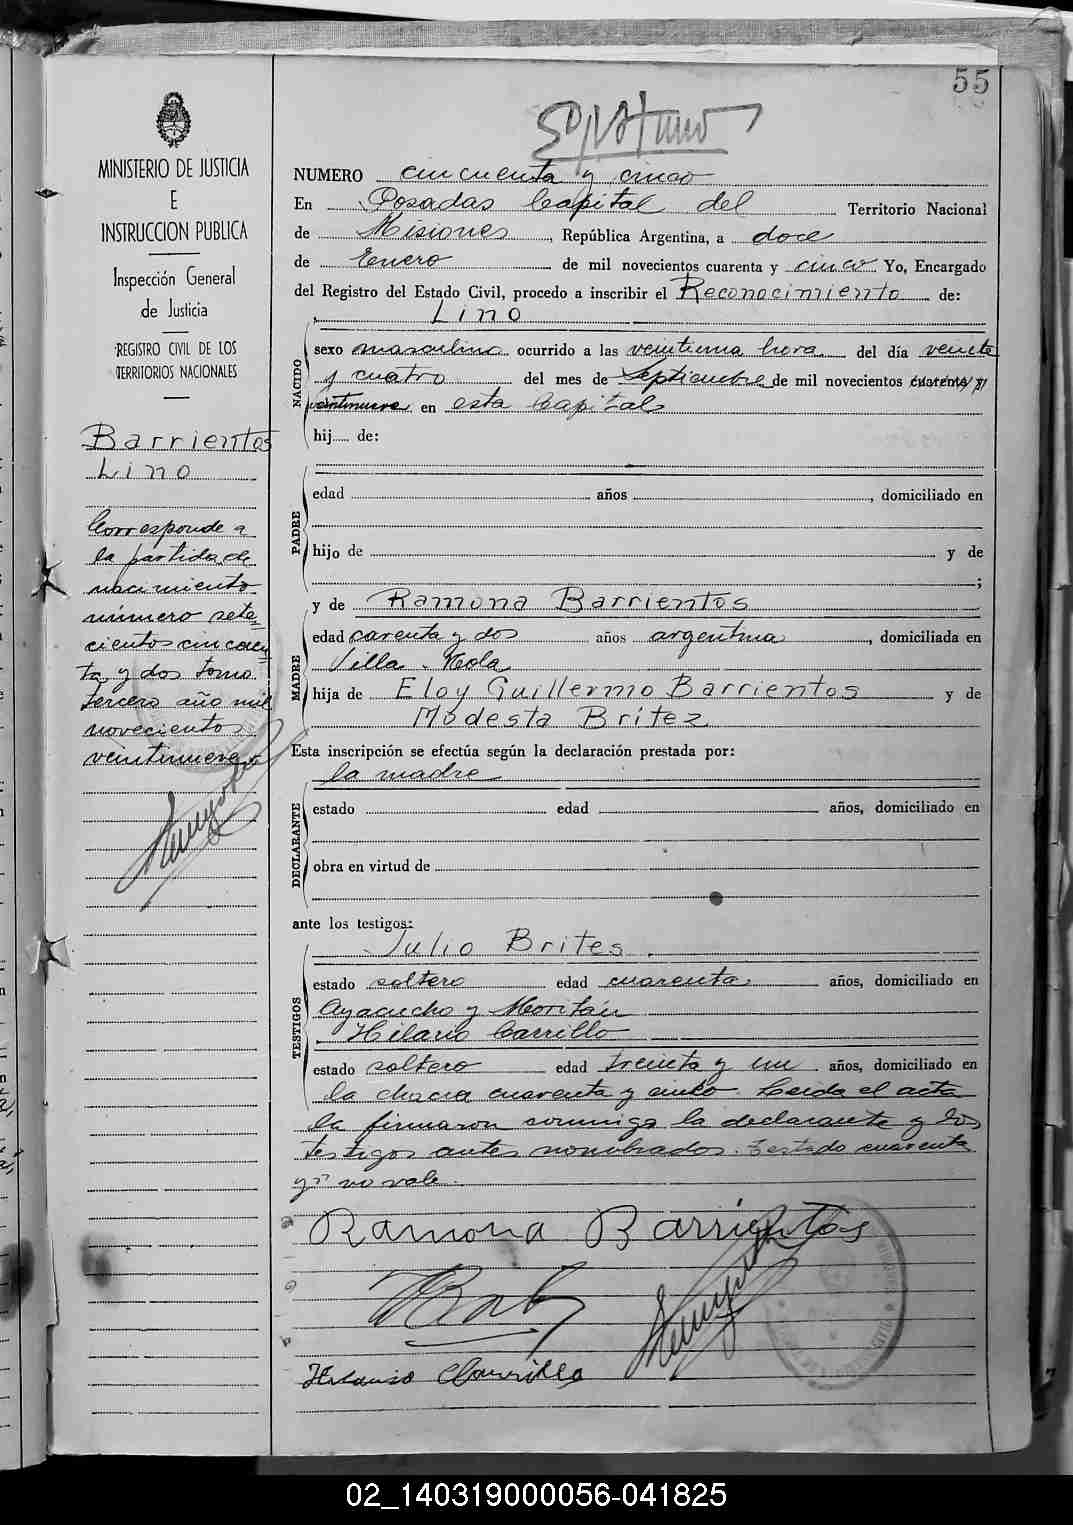 55
NUMERO cincuenta y cinco
En Posadas Capital del Territorio Nacional
de Misiones, República Argentina, a doce
de Enero de mil novecientos cuarenta y cinco Yo, Encargado
del Registro del Estado Civil, procedo a inscribir el Reconocimiento de:
Lino
NACIDO
sexo masculino ocurrido a las veintiuna hora del día veinte
y cuatro del mes de Septiembre de mil novecientos cuarenta y
veintinueve en esta Capital
hij..... de:
PADRE
edad ........ años ........, domiciliado en
hijo de ........ y de
;
MADRE
y de Ramona Barrientos
edad carenta y dos años argentina, domiciliada en
Villa Mola
hija de Eloy Guillermo Barrientos y de
Modesta Britez
Esta inscripción se efectúa según la declaración prestada por:
la madre
DECLARANTE
estado ........ edad ........ años, domiciliado en
obra en virtud de
ante los testigos:
Julio Brites
TESTIGOS
estado soltero edad cuarenta años, domiciliado en
Ayacucho y Moritán
Hilario Carrillo
estado soltero edad treinta y un años, domiciliado en
la chacra cuarenta y cinco. Leida el acta
la firmaron conmigo la declarante y los
testigos antes nombrados. Testado cuarenta
y" no vale.
Ramona Barrientos
MINISTERIO DE JUSTICIA
E
INSTRUCCION PUBLICA
Inspección General
de Justicia
REGISTRO CIVIL DE LOS
TERRITORIOS NACIONALES
Barrientos
Lino
Corresponde a
la partida de
nacimiento
número sete=
cientos cincuen
ta y dos tomo
tercero año mil
novecientos
veintinueve
02_140319000056-041825